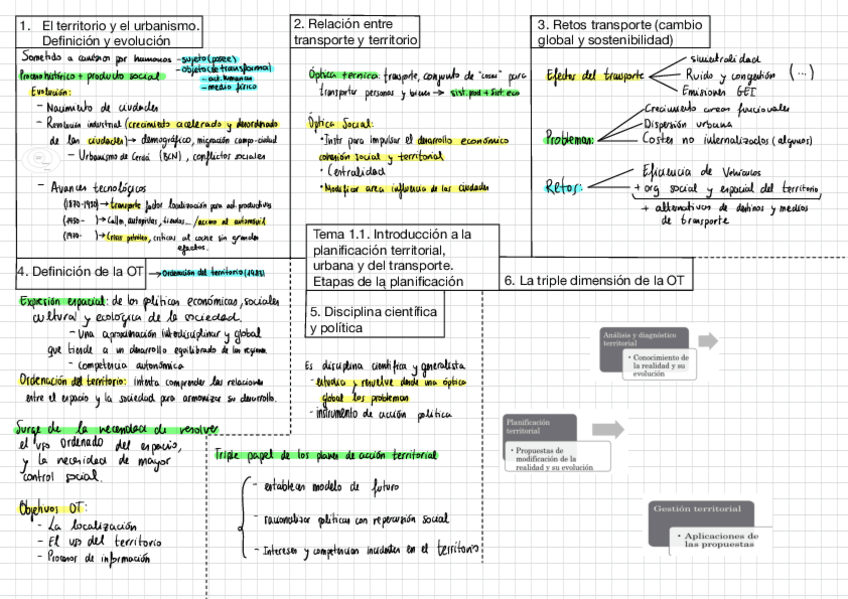 1. El territorio y el urbanismo.
Definición y evolución
Sometido a cambios por humanos
- sujeto (posee)
- objeto (es transforma)
- act. humanas
- medio físico
Proceso histórico + producto social
Evolución:
- Nacimiento de ciudades
- Revolución industrial (crecimiento acelerado y desordenado
de las ciudades) → demográfico, migración campo-ciudad
- Urbanismo de Cerdá (BCN), conflictos sociales
- Avances tecnológicos
(1870-1950) → transporte factor localización para act. productivas
(1950- ) → Calles, autopistas, tiendas... / acceso al automóvil
(1970- ) → Crisis petróleo, críticas al coche sin grandes
efectos.
2. Relación entre
transporte y territorio
Óptica técnica: transporte, conjunto de "cosas" para
transportar personas y bienes → sist. prod + Sist. eco
Óptica Social:
• Instr para impulsar el desarrollo económico
cohesión social y territorial
• Centralidad
• Modificar area influencia de las ciudades
3. Retos transporte (cambio
global y sostenibilidad)
Efectos del transporte
siniestralidad
Ruido y congestión (...)
Emisiones GEI
Problemas:
Crecimiento areas funcionales
Dispersión urbana
Costes no internalizados (algunos)
Retos:
Eficiencia de Vehículos
+ org social y espacial del territorio
+ alternativas de destinos y medios
de transporte
Tema 1.1. Introducción a la
planificación territorial,
urbana y del transporte.
Etapas de la planificación
4. Definición de la OT
→ Ordenación del territorio (1983)
Expresión espacial: de las políticas económicas, sociales
cultural y ecológica de la sociedad.
- Una aproximación interdisciplinar y global
que tiende a un desarrollo equilibrado de las regiones.
- competencia autonómica
Ordenación del territorio: intenta comprender las relaciones
entre el espacio y la sociedad para armonizar su desarrollo.
Surge de la necesidad de resolver
el uso ordenado del espacio,
y la necesidad de mayor
control social.
Objetivos OT:
- La localización
- El uso del territorio
- Procesos de información
5. Disciplina científica
y política
Es disciplina científica y generalista
- estudia y resuelve desde una óptica
global los problemas
- instrumento de acción política
Triple papel de los planes de acción territorial
- establecen modelo de futuro
- racionalizar políticas con repercusión social
- Intereses y competencias incidentes en el territorio
6. La triple dimensión de la OT
Análisis y diagnóstico
territorial
• Conocimiento de
la realidad y su
evolución
Planificación
territorial
• Propuestas de
modificación de la
realidad y su evolución
Gestión territorial
• Aplicaciones de
las propuestas